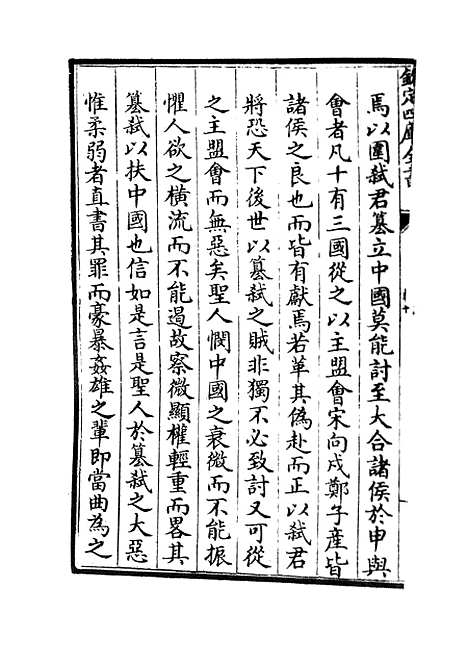 欽定四庫全書
焉以圍弑君篡立中國莫能討至大合諸侯於申與
會者凡十有三國從之以主盟會宋向戌鄭子產皆
諸侯之良也而皆有獻焉若革其偽赴而正以弑君
將恐天下後世以篡弑之賊非獨不必致討又可從
之主盟會而無惡矣聖人憫中國之衰微而不能振
懼人欲之橫流而不能遏故察微顯權輕重而畧其
篡弑以扶中國也信如是言是聖人於篡弑之大惡
惟柔弱者直書其罪而豪暴姦雄之輩即當曲為之